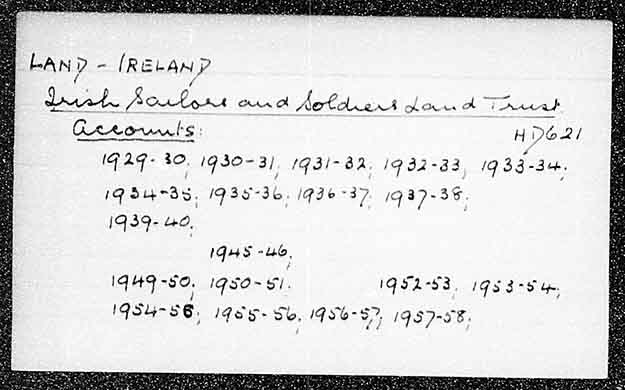 LAND - IRELAND
Irish Sailors and Soldiers Land Trust
Accounts:
HD621
1929-30; 1930-31; 1931-32; 1932-33; 1933-34;
1934-35; 1935-36; 1936-37; 1937-38;
1939-40;
1945-46;
1949-50; 1950-51; 1952-53; 1953-54;
1954-56; 1955-56; 1956-57; 1957-58;